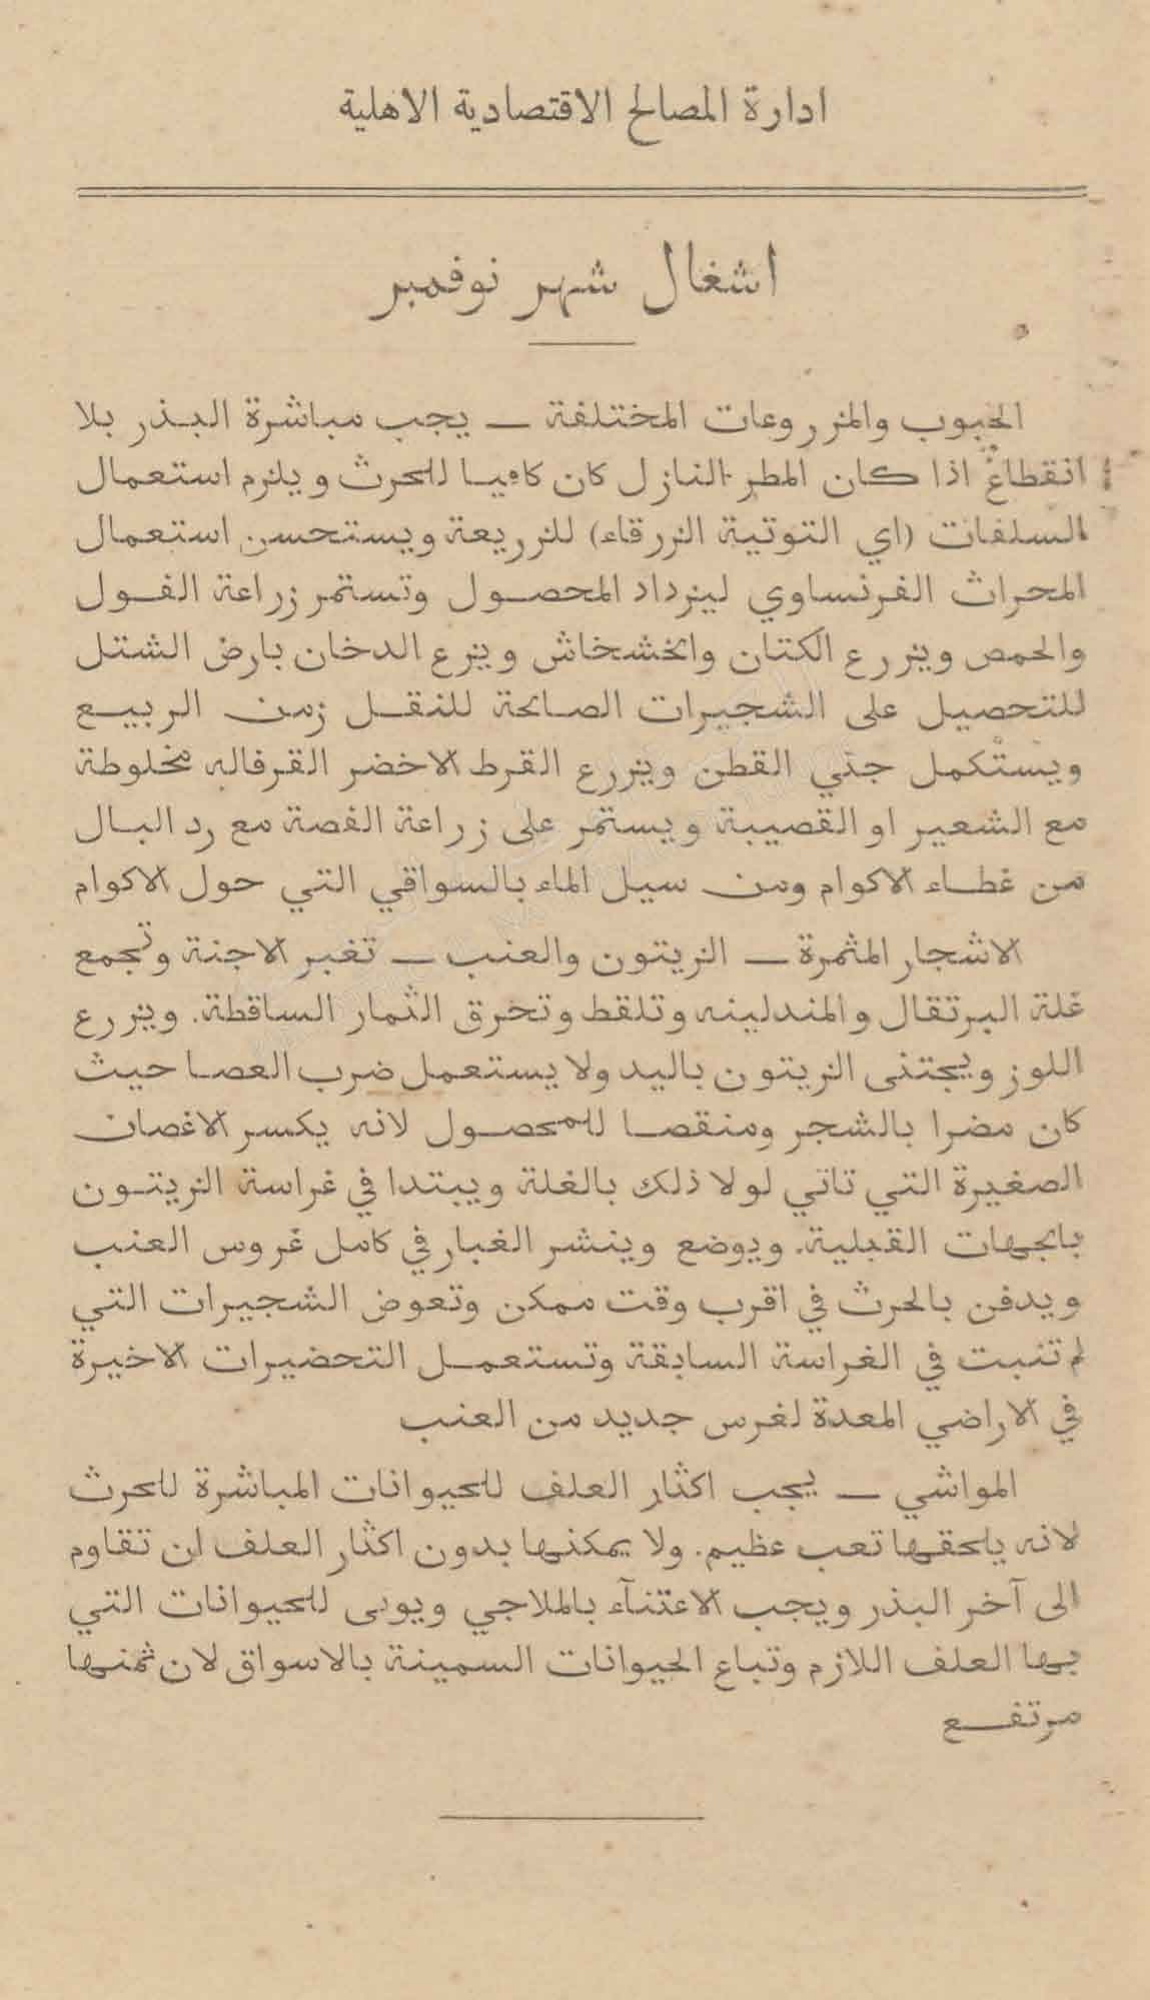 ادارة المصالح الاقتصادية الاهلية
اشغال شهر نوفمبر
الحبوب والمزروعات المختلفة — يجب مباشرة البذر بلا
انقطاع اذا كان المطر النازل كان كافيا للحرث ويلزم استعمال
السلفات (اي التوتية الزرقاء) للزريعة ويستحسن استعمال
المحراث الفرنساوي ليزداد المحصول وتستمر زراعة الفول
والحمص ويزرع الكتان والخشخاش ويزرع الدخان بارض الشتل
للتحصيل على الشجيرات الصالحة للنقل زمن الربيع
ويستكمل جني القطن ويزرع القرط الاخضر القرفاله مخلوطة
مع الشعير او القصيبة ويستمر على زراعة الفصة مع رد البال
من غطاء الاكوام ومن سيل الماء بالسواقي التي حول الاكوام
الاشجار المثمرة — الزيتون والعنب — تغبر الاجنة وتجمع
غلة البرتقال والمندلينه وتلقط وتحرق الثمار الساقطة. ويزرع
اللوز ويجتنى الزيتون باليد ولا يستعمل ضرب العصا حيث
كان مضرا بالشجر ومنقصا للمحصول لانه يكسر الاغصان
الصغيرة التي تاتي لولا ذلك بالغلة ويبتدا في غراسة الزيتون
بالجهات القبلية. ويوضع وينشر الغبار في كامل غروس العنب
ويدفن بالحرث في اقرب وقت ممكن وتعوض الشجيرات التي
لم تنبت في الغراسة السابقة وتستعمل التحضيرات الاخيرة
في الاراضي المعدة لغرس جديد من العنب
المواشي — يجب اكثار العلف للحيوانات المباشرة للحرث
لانه يلحقها تعب عظيم. ولا يمكنها بدون اكثار العلف ان تقاوم
الى آخر البذر ويجب الاعتنآء بالملاجي ويوبى للحيوانات التي
بها العلف اللازم وتباع الحيوانات السمينة بالاسواق لان ثمنها
مرتفع